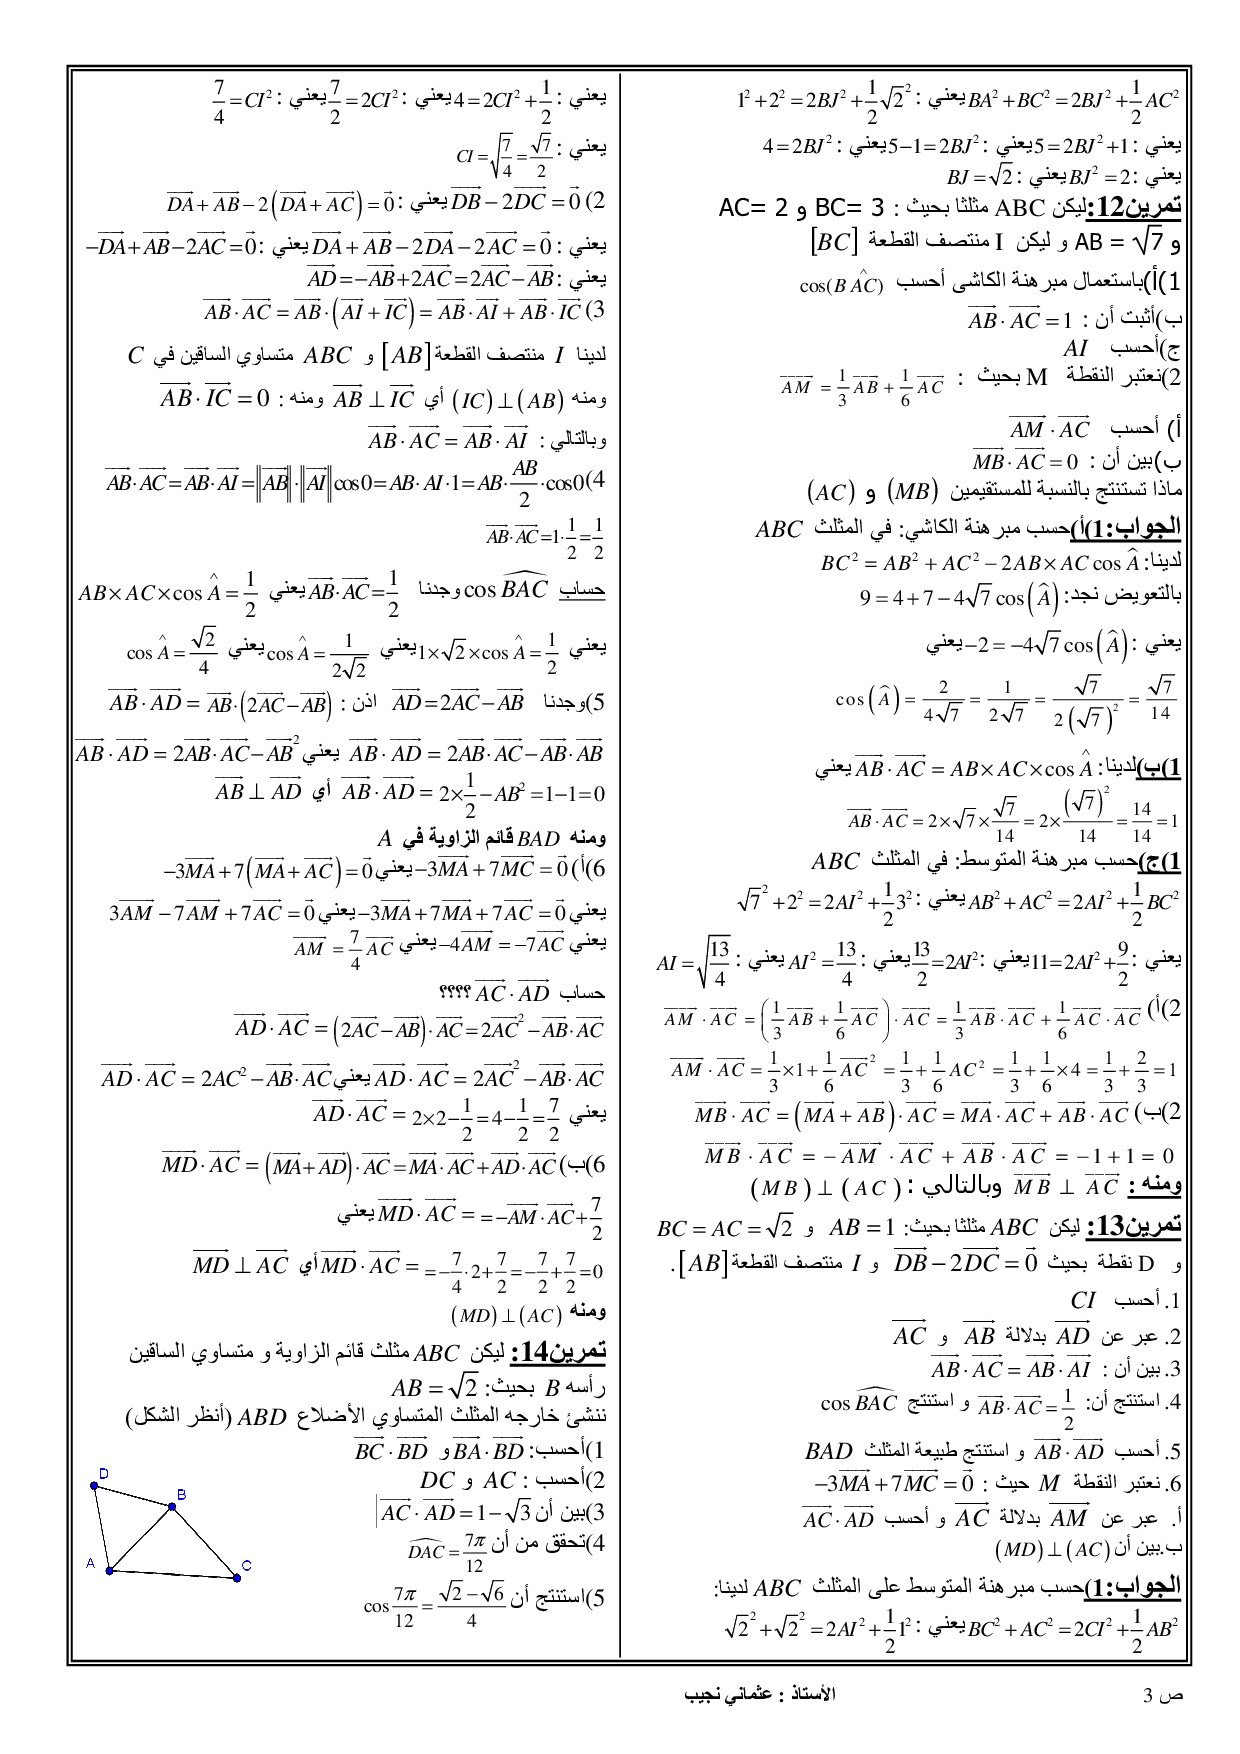 BA² + BC² = 2BJ² + 1/2 AC² يعني : 1² + 2² = 2BJ² + 1/2 √2²
يعني : 5 = 2BJ² + 1 يعني : 5 − 1 = 2BJ² يعني : 4 = 2BJ²
يعني : BJ² = 2 يعني : BJ = √2
تمرين12: ليكن ABC مثلثا بحيث : BC= 3 و AC= 2
و AB = √7 و ليكن I منتصف القطعة [BC]
1)أ)باستعمال مبرهنة الكاشى أحسب cos(BÂC)
ب)أثبت أن : AB⃗ · AC⃗ = 1
ج)أحسب AI
2)نعتبر النقطة M بحيث : AM⃗ = 1/3 AB⃗ + 1/6 AC⃗
أ) أحسب AM⃗ · AC⃗
ب)بين أن : MB⃗ · AC⃗ = 0
ماذا تستنتج بالنسبة للمستقيمين (MB) و (AC)
الجواب:1)أ)حسب مبرهنة الكاشي: في المثلث ABC
لدينا: BC² = AB² + AC² − 2AB × AC cos Â
بالتعويض نجد: 9 = 4 + 7 − 4√7 cos(Â)
يعني : −2 = −4√7 cos(Â) يعني
cos(Â) = 2/(4√7) = 1/(2√7) = √7/(2(√7)²) = √7/14
1)ب)لدينا: AB⃗ · AC⃗ = AB × AC × cos Â يعني
AB⃗ · AC⃗ = 2 × √7 × √7/14 = 2 × (√7)²/14 = 14/14 = 1
1)ج)حسب مبرهنة المتوسط: في المثلث ABC
AB² + AC² = 2AI² + 1/2 BC² يعني : √7² + 2² = 2AI² + 1/2 3²
يعني : 11 = 2AI² + 9/2 يعني : 13/2 = 2AI² يعني : AI² = 13/4 يعني : AI = √(13/4)
2)أ) AM⃗ · AC⃗ = (1/3 AB⃗ + 1/6 AC⃗) · AC⃗ = 1/3 AB⃗ · AC⃗ + 1/6 AC⃗ · AC⃗
AM⃗ · AC⃗ = 1/3 × 1 + 1/6 AC⃗² = 1/3 + 1/6 AC² = 1/3 + 1/6 × 4 = 1/3 + 2/3 = 1
2)ب) MB⃗ · AC⃗ = (MA⃗ + AB⃗) · AC⃗ = MA⃗ · AC⃗ + AB⃗ · AC⃗
MB⃗ · AC⃗ = −AM⃗ · AC⃗ + AB⃗ · AC⃗ = −1 + 1 = 0
ومنه : MB⃗ ⊥ AC⃗ وبالتالي : (MB) ⊥ (AC)
تمرين13: ليكن ABC مثلثا بحيث: AB = 1 و BC = AC = √2
و D نقطة بحيث DB⃗ − 2DC⃗ = 0⃗ و I منتصف القطعة [AB].
1. أحسب CI
2. عبر عن AD⃗ بدلالة AB⃗ و AC⃗
3. بين أن : AB⃗ · AC⃗ = AB⃗ · AI⃗
4. استنتج أن: AB⃗ · AC⃗ = 1/2 و استنتج cos BAC
5. أحسب AB⃗ · AD⃗ و استنتج طبيعة المثلث BAD
6. نعتبر النقطة M حيث : −3MA⃗ + 7MC⃗ = 0⃗
أ. عبر عن AM⃗ بدلالة AC⃗ و أحسب AC⃗ · AD⃗
ب.بين أن (MD) ⊥ (AC)
الجواب:1)حسب مبرهنة المتوسط على المثلث ABC لدينا:
BC² + AC² = 2CI² + 1/2 AB² يعني : √2² + √2² = 2AI² + 1/2 1²
يعني : 4 = 2CI² + 1/2 يعني : 7/2 = 2CI² يعني : 7/4 = CI²
يعني : CI = √(7/4) = √7/2
2) DB⃗ − 2DC⃗ = 0⃗ يعني : DA⃗ + AB⃗ − 2(DA⃗ + AC⃗) = 0⃗
يعني : DA⃗ + AB⃗ − 2DA⃗ − 2AC⃗ = 0⃗ يعني : −DA⃗ + AB⃗ − 2AC⃗ = 0⃗
يعني : AD⃗ = −AB⃗ + 2AC⃗ = 2AC⃗ − AB⃗
3) AB⃗ · AC⃗ = AB⃗ · (AI⃗ + IC⃗) = AB⃗ · AI⃗ + AB⃗ · IC⃗
لدينا I منتصف القطعة [AB] و ABC متساوي الساقين في C
ومنه (IC) ⊥ (AB) أي AB⃗ ⊥ IC⃗ ومنه : AB⃗ · IC⃗ = 0
وبالتالي : AB⃗ · AC⃗ = AB⃗ · AI⃗
4) AB⃗ · AC⃗ = AB⃗ · AI⃗ = ‖AB⃗‖ · ‖AI⃗‖ cos0 = AB · AI · 1 = AB · AB/2 · cos0
AB⃗ · AC⃗ = 1 · 1/2 = 1/2
حساب cos BAC وجدنا AB⃗ · AC⃗ = 1/2 يعني AB × AC × cos Â = 1/2
يعني 1 × √2 × cos Â = 1/2 يعني cos Â = 1/(2√2) يعني cos Â = √2/4
5)وجدنا AD⃗ = 2AC⃗ − AB⃗ اذن : AB⃗ · AD⃗ = AB⃗ · (2AC⃗ − AB⃗)
AB⃗ · AD⃗ = 2AB⃗ · AC⃗ − AB⃗ · AB⃗ يعني AB⃗ · AD⃗ = 2AB⃗ · AC⃗ − AB⃗²
AB⃗ · AD⃗ = 2 × 1/2 − AB² = 1 − 1 = 0 أي AB⃗ ⊥ AD⃗
ومنه BAD قائم الزاوية في A
6)أ) −3MA⃗ + 7MC⃗ = 0⃗ يعني −3MA⃗ + 7(MA⃗ + AC⃗) = 0⃗
يعني −3MA⃗ + 7MA⃗ + 7AC⃗ = 0⃗ يعني 3AM⃗ − 7AM⃗ + 7AC⃗ = 0⃗
يعني −4AM⃗ = −7AC⃗ يعني AM⃗ = 7/4 AC⃗
حساب AC⃗ · AD⃗ ؟؟؟؟
AD⃗ · AC⃗ = (2AC⃗ − AB⃗) · AC⃗ = 2AC⃗² − AB⃗ · AC⃗
AD⃗ · AC⃗ = 2AC⃗² − AB⃗ · AC⃗ يعني AD⃗ · AC⃗ = 2AC² − AB⃗ · AC⃗
يعني AD⃗ · AC⃗ = 2 × 2 − 1/2 = 4 − 1/2 = 7/2
6)ب) MD⃗ · AC⃗ = (MA⃗ + AD⃗) · AC⃗ = MA⃗ · AC⃗ + AD⃗ · AC⃗
MD⃗ · AC⃗ = = −AM⃗ · AC⃗ + 7/2 يعني
MD⃗ · AC⃗ = = −7/4 · 2 + 7/2 = −7/2 + 7/2 = 0 أي MD⃗ ⊥ AC⃗
ومنه (MD) ⊥ (AC)
تمرين14: ليكن ABC مثلث قائم الزاوية و متساوي الساقين
رأسه B بحيث: AB = √2
ننشئ خارجه المثلث المتساوي الأضلاع ABD (أنظر الشكل)
1)أحسب: BA⃗ · BD⃗ و BC⃗ · BD⃗
2)أحسب : AC و DC
3)بين أن AC⃗ · AD⃗ = 1 − √3
4)تحقق من أن DAC = 7π/12
5)استنتج أن cos 7π/12 = (√2 − √6)/4
D
B
A
C
ص 3
الأستاذ : عثماني نجيب